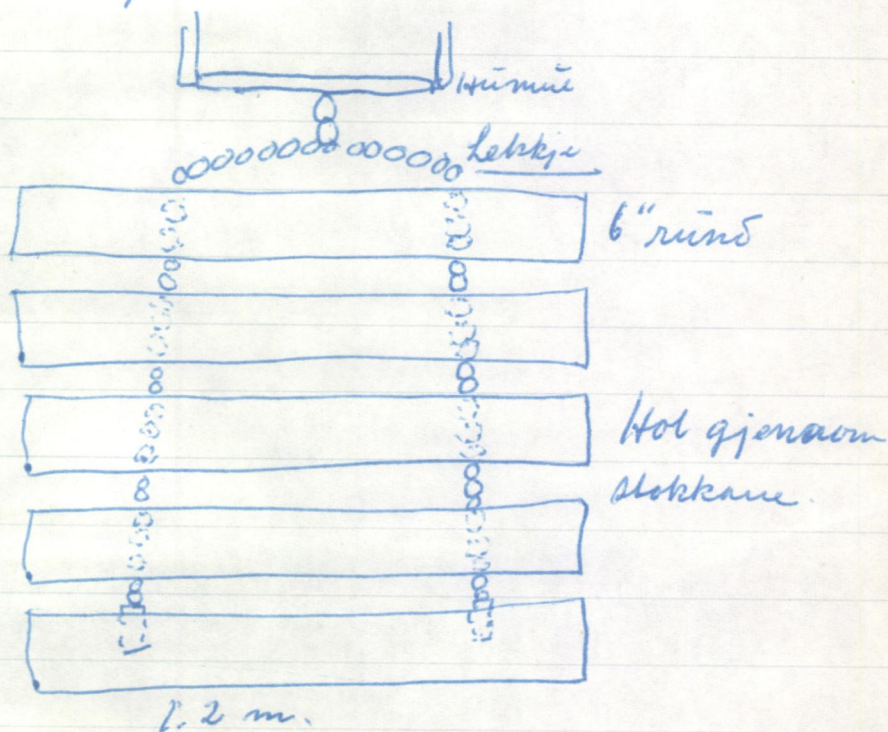 Lekkje
6" rund
Hol gjenaom
stokkane.
2 m.